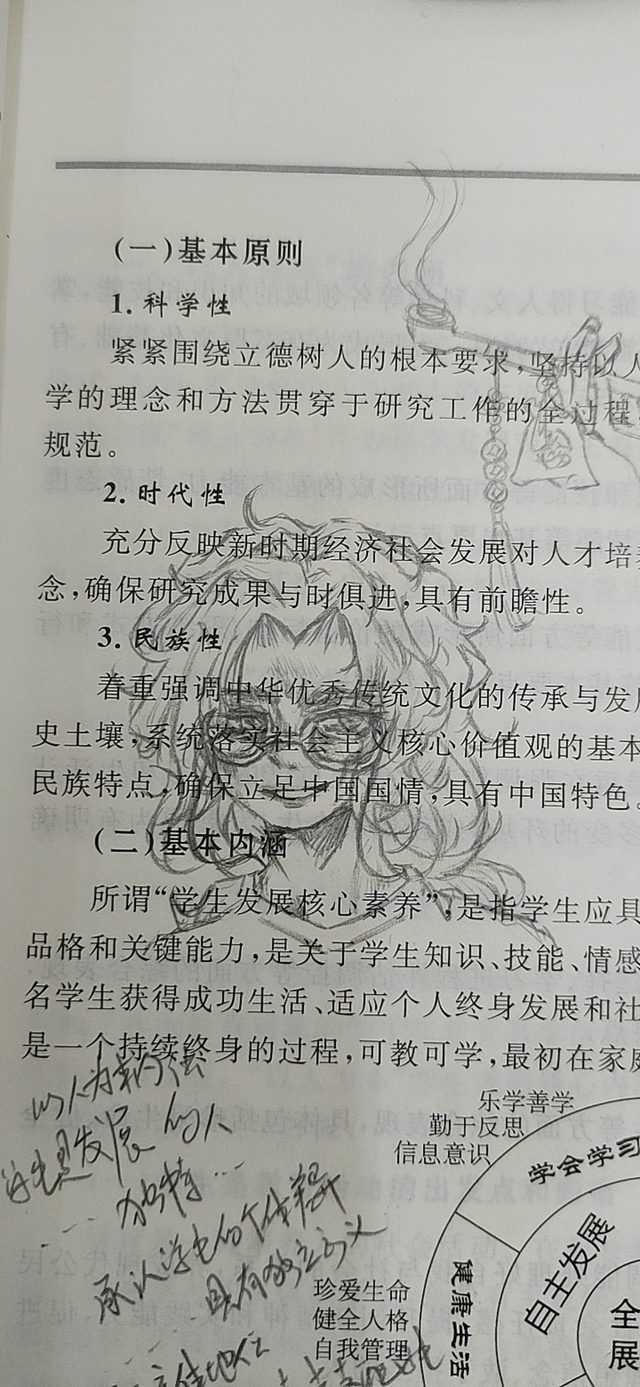 (一)基本原则
1. 科学性
紧紧围绕立德树人的根本要求,坚持以人
学的理念和方法贯穿于研究工作的全过程,
规范。
2. 时代性
充分反映新时期经济社会发展对人才培养
念,确保研究成果与时俱进,具有前瞻性。
3. 民族性
着重强调中华优秀传统文化的传承与发展
史土壤,系统落实社会主义核心价值观的基本
民族特点,确保立足中国国情,具有中国特色。
(二)基本内涵
所谓“学生发展核心素养”,是指学生应具
品格和关键能力,是关于学生知识、技能、情感
名学生获得成功生活、适应个人终身发展和社
是一个持续终身的过程,可教可学,最初在家庭
以人为本
学生是发展的人
独特
承认学生的个体
具有独立意义
乐学善学
勤于反思
信息意识
学会学习
自主发展
健康生活
珍爱生命
健全人格
自我管理
全
展